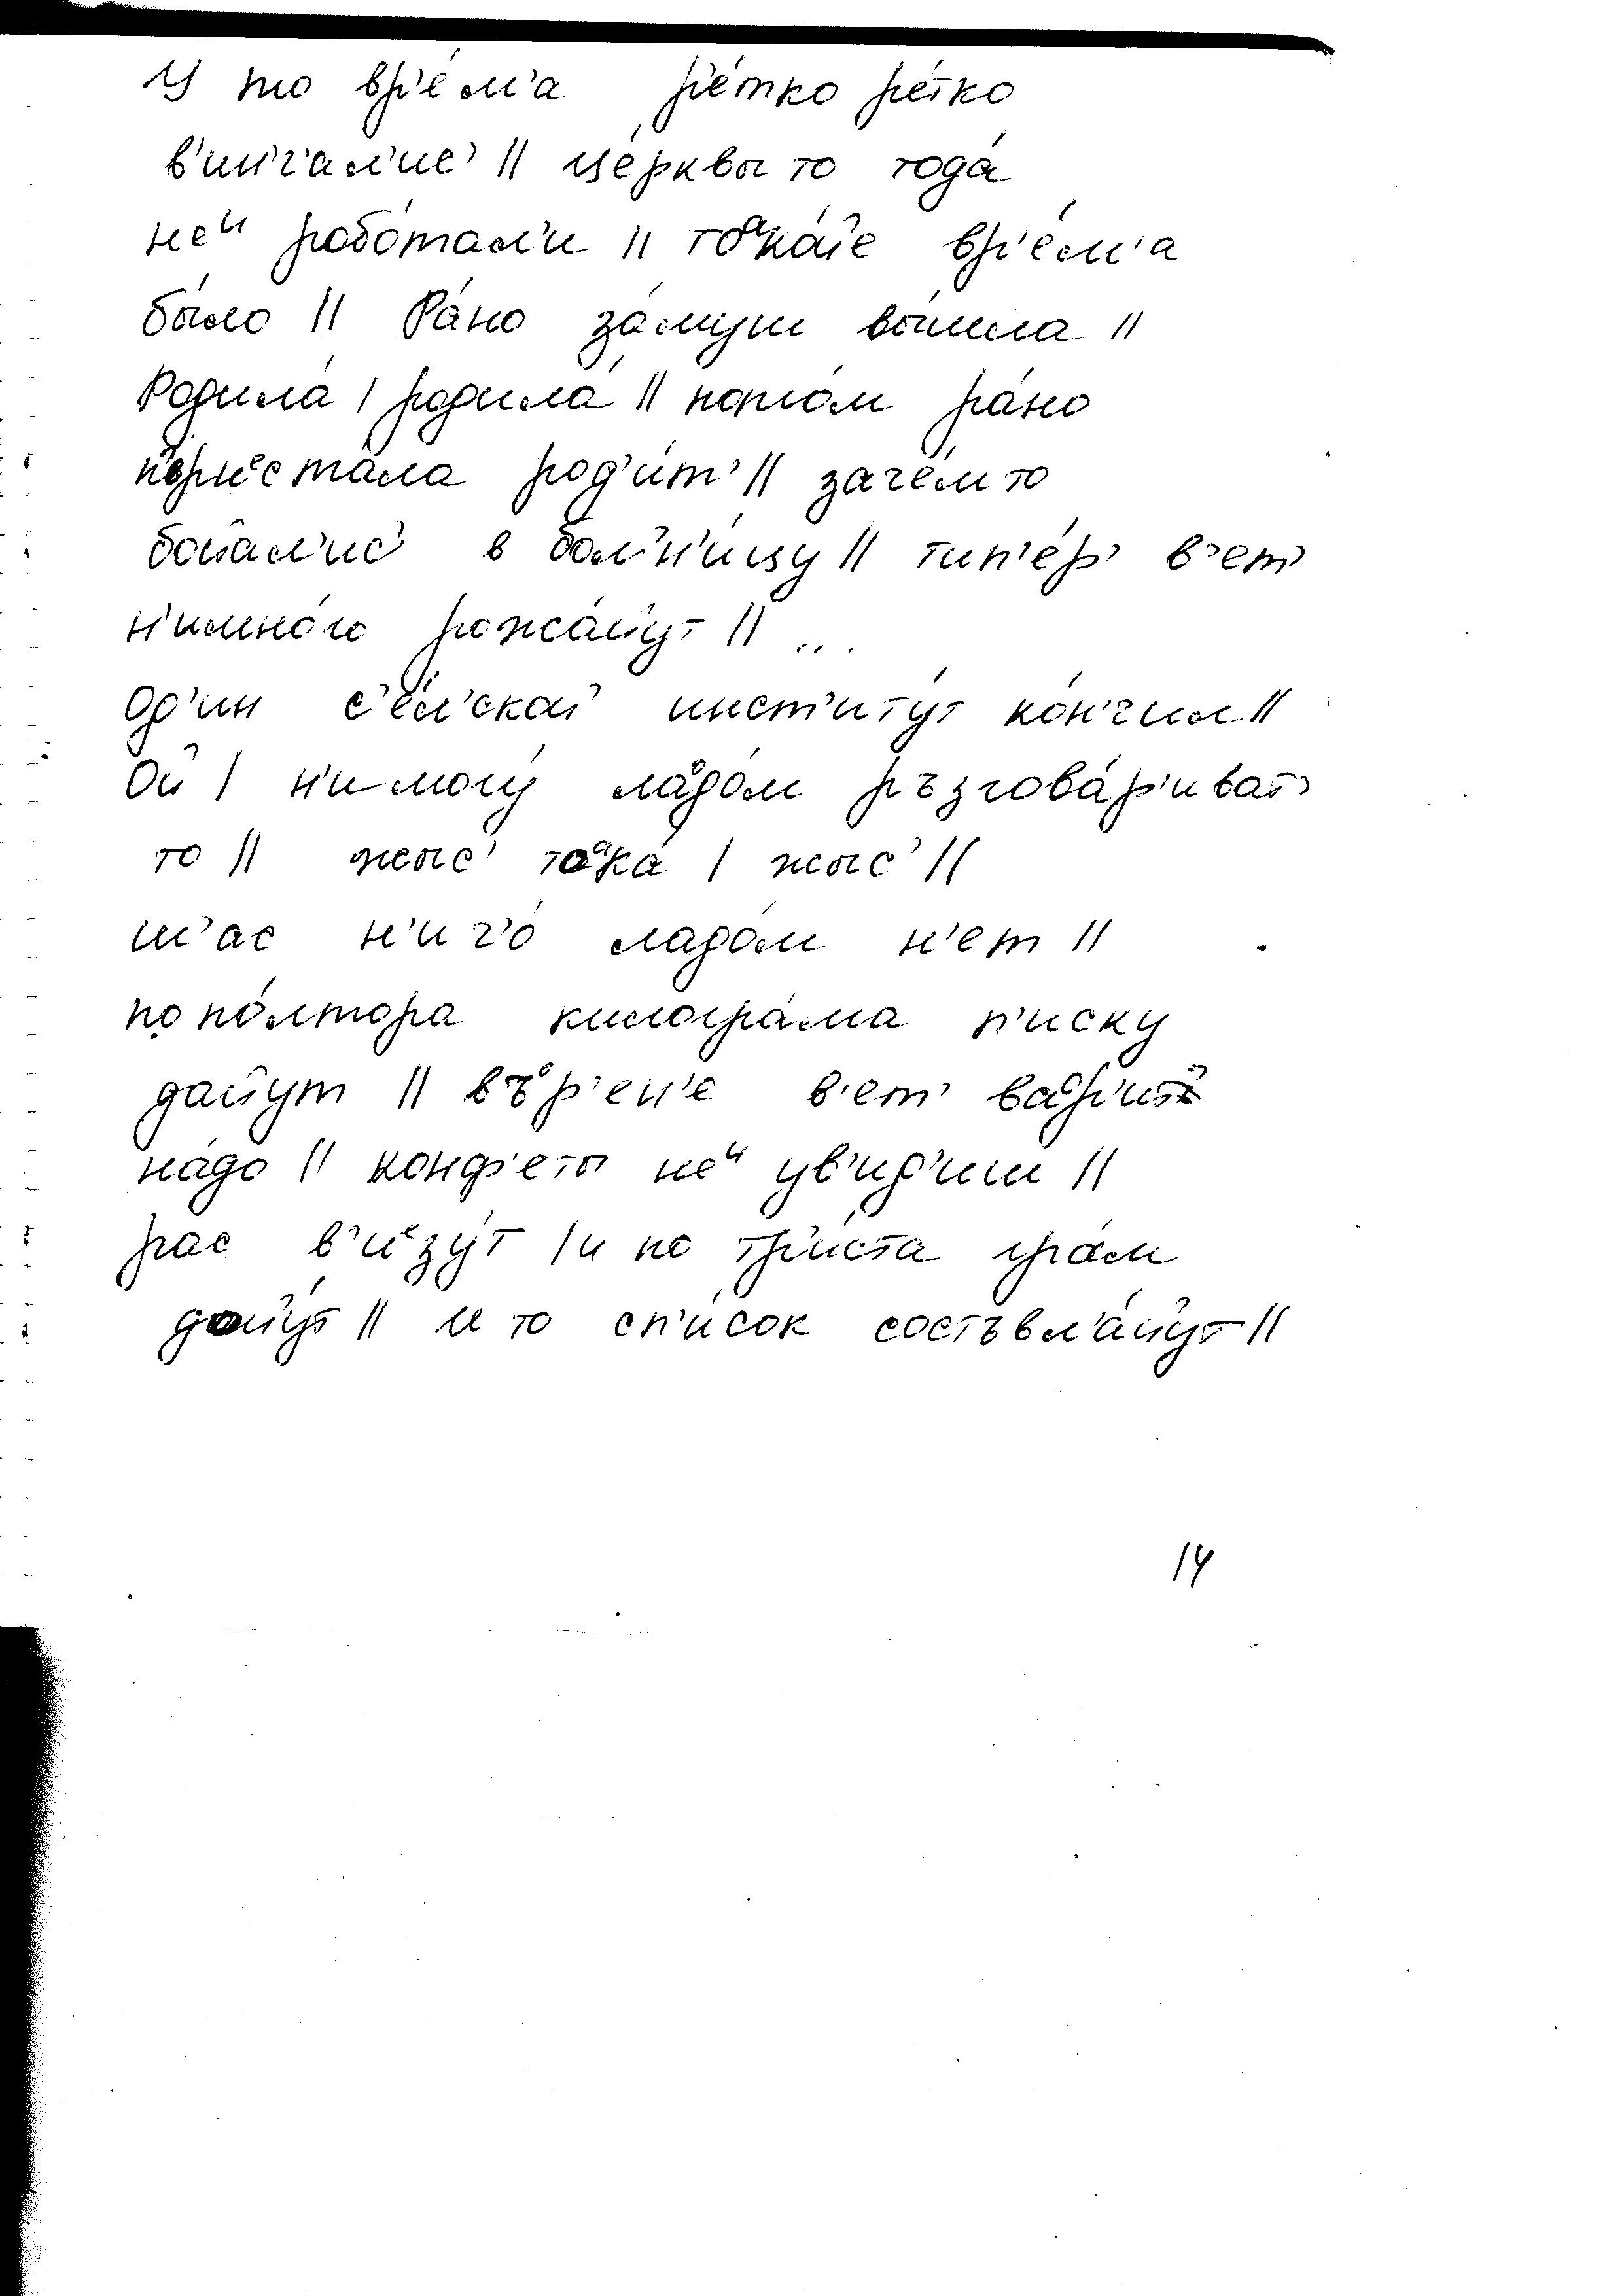 У то вр'е́м'а р'е́тко р'е́тко
в'ин'ч'а́л'ис' || це́рквы то тода́
неᶦ рабо́тал'и || тоᵃка́йе вр'е́м'а
бы́ло || Ра́но за́муш вы́шла ||
Родила́ | родила́ || пото́м ра́но
п'ер'иᵉста́ла род'и́т' || заче́м то
бойа́л'ис' в бол'н'и́цу || тип'е́р' в'ет'
н'имно́го рожа́йут ||...
Од'ин с'е́л'скай инст'иту́т ко́н'чил ||
Ой | н'и могу́ лаᵒдо́м ръзгова́р'иват'
то || жыс' тоᵃка́ | жыс' ||
ш'ас н'и ч'о́ ладо́м н'ет ||
по по́лтора килогра́ма п'иску
дайут || въᵒр'ен'е в'ет' ваᵒр'ит'
на́до || конф'еты неᶦ ув'ид'иш ||
рас в'иᵉзу́т | и по три́ста гра́м
дайу́т || и то сп'и́сок состъвл'а́йут ||
14